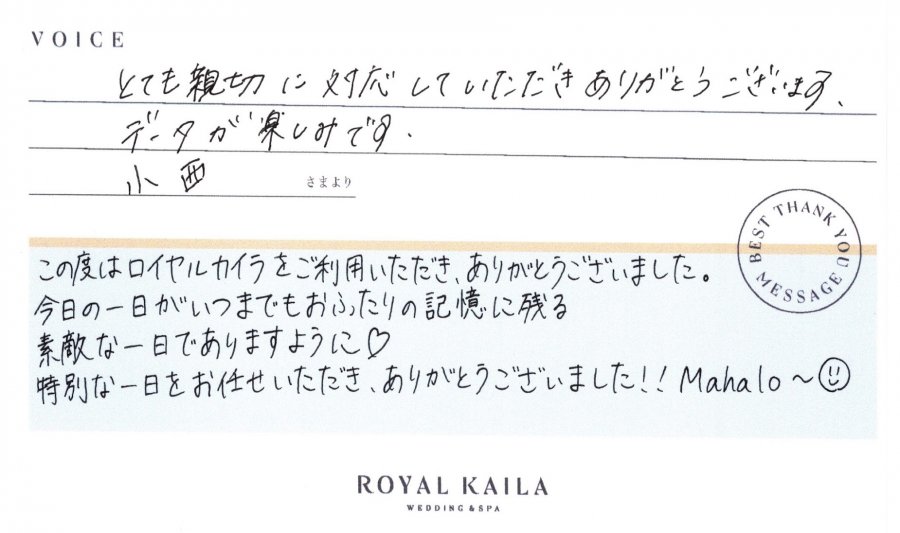 VOICE
とても親切に対応していただきありがとうございます、
データが楽しみです.
小西 さまより
BEST THANK YOU
MESSAGE
この度はロイヤルカイラをご利用いただき、ありがとうございました。
今日の一日がいつまでもおふたりの記憶に残る
素敵な一日でありますように♡
特別な一日をお任せいただき、ありがとうございました!! Mahalo〜☺
ROYAL KAILA
WEDDING & SPA